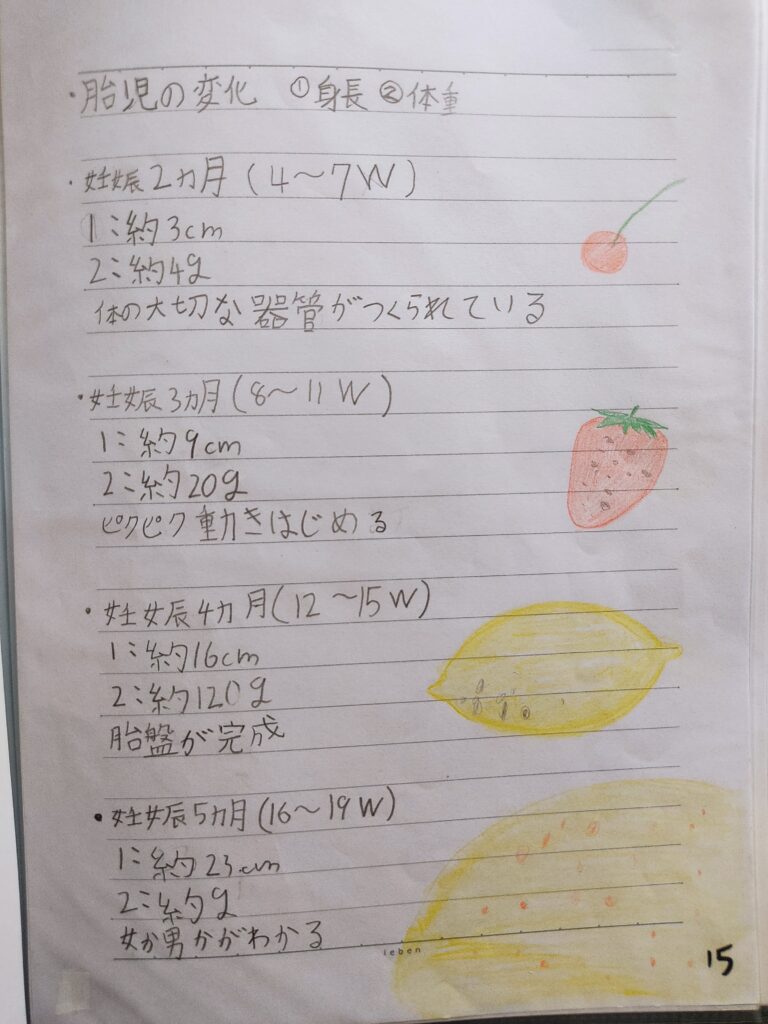 ・胎児の変化 ①身長 ②体重
・妊娠2カ月(4〜7W)
1:約3cm
2:約4g
体の大切な器管がつくられている
・妊娠3カ月(8〜11W)
1:約9cm
2:約20g
ピクピク動きはじめる
・妊娠4カ月(12〜15W)
1:約16cm
2:約120g
胎盤が完成
・妊娠5カ月(16〜19W)
1:約23cm
2:約g
女か男かがわかる
leben
15